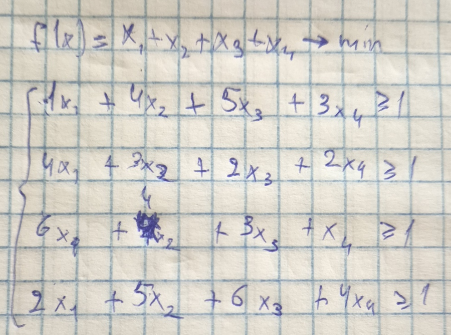 f(x) = x₁ + x₂ + x₃ + x₄ → min
1x₁ + 4x₂ + 5x₃ + 3x₄ ≥ 1
4x₁ + 3x₂ + 2x₃ + 2x₄ ≥ 1
6x₁ + 4x₂ + 3x₃ + x₄ ≥ 1
2x₁ + 5x₂ + 6x₃ + 4x₄ ≥ 1